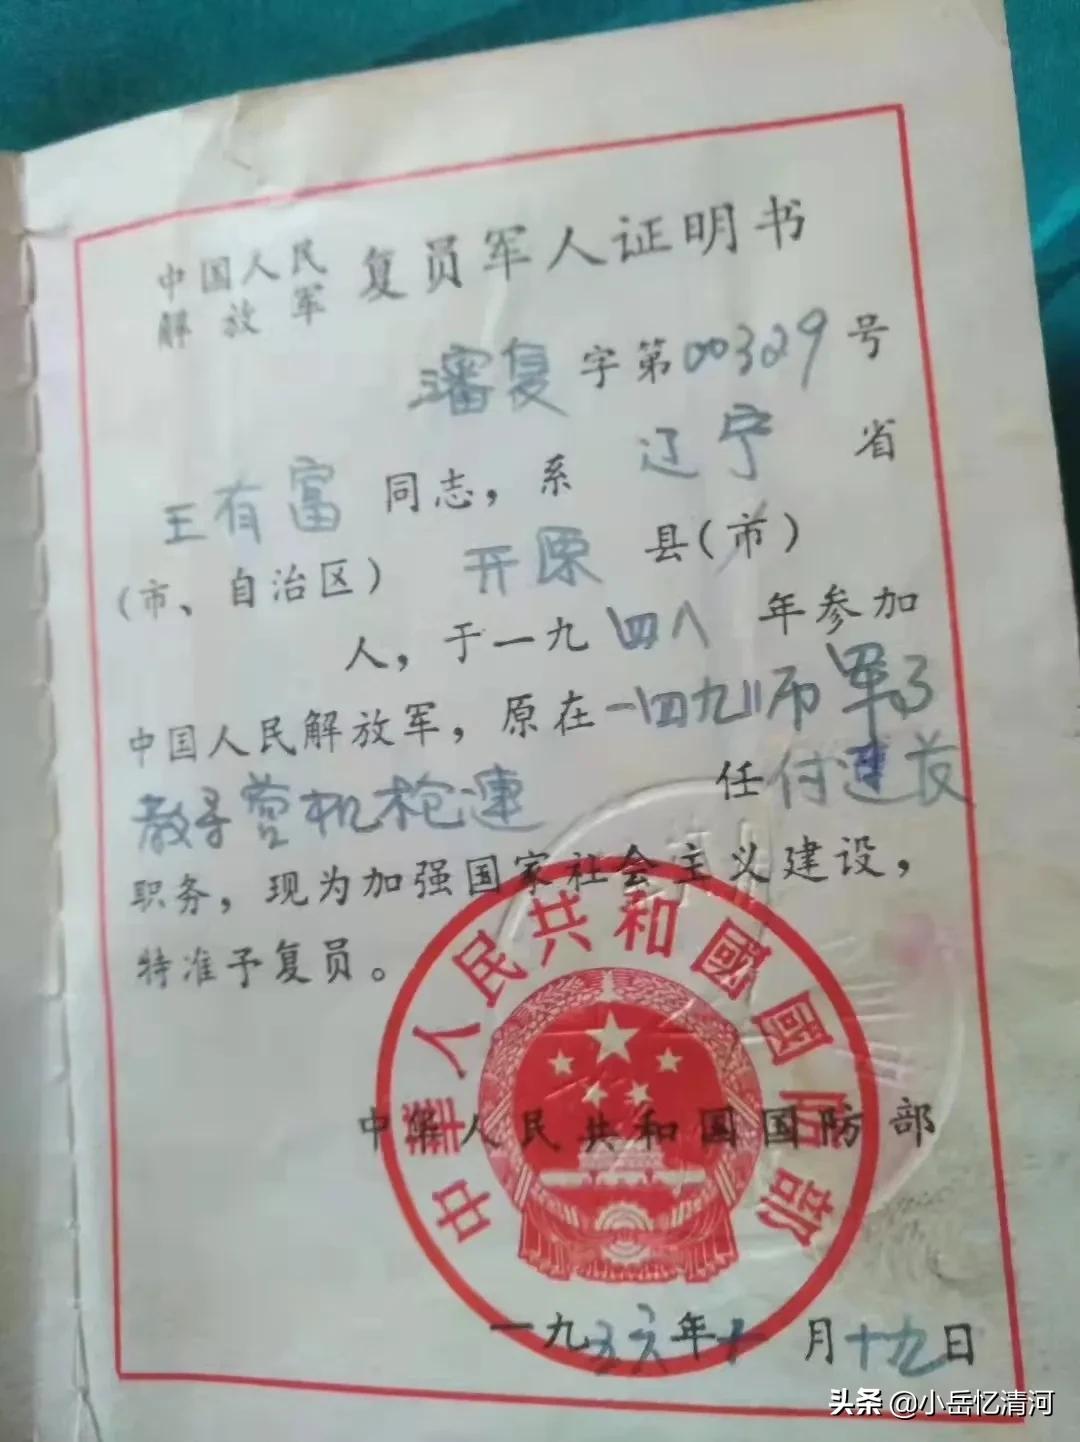 中国人民解放军 复员军人证明书
瀋复字第00329号
王有富同志，系辽宁省
(市、自治区)开原县(市)
人，于一九四八年参加
中国人民解放军，原在一四九师军了
教导营机枪连 任付连长
职务，现为加强国家社会主义建设，
特准予复员。
中华人民共和国国防部
中华人民共和國國防部
一九五六年十月十九日
头条 @小岳忆清河